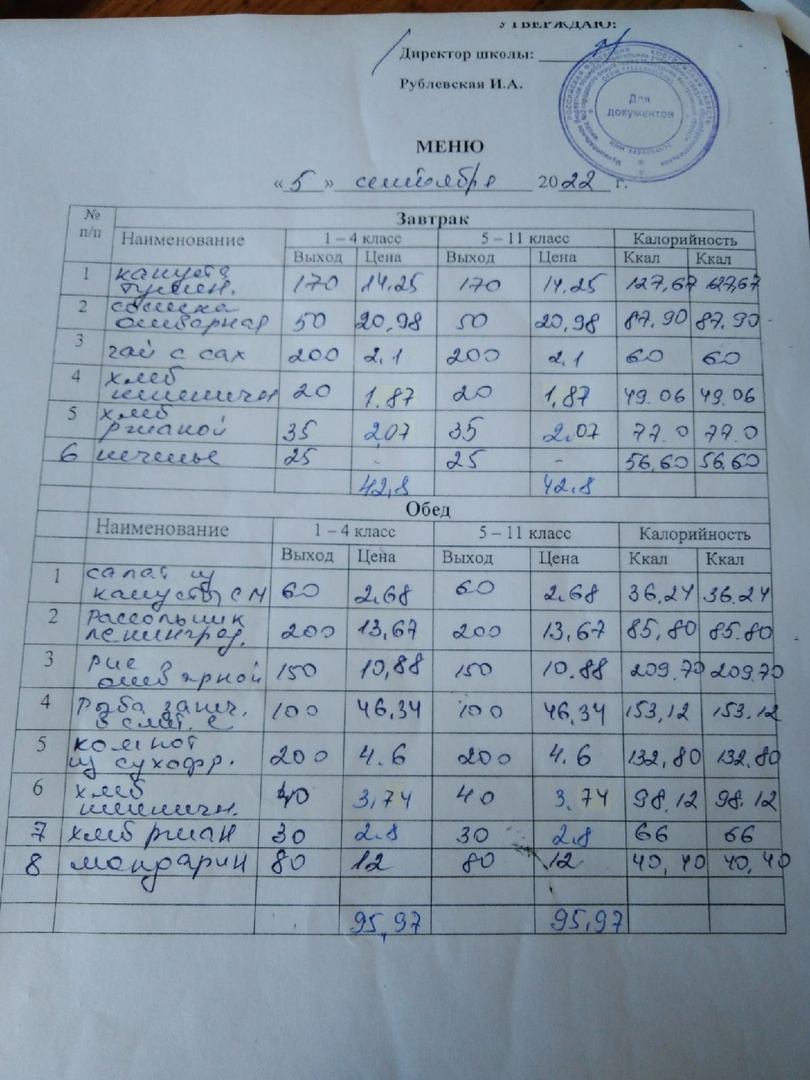 УТВЕРЖДАЮ:
Директор школы:
Рублевская И.А.
Для
документов
МЕНЮ
«5» сентября 2022 г.
№ п/п Завтрак
Наименование 1 – 4 класс 5 – 11 класс Калорийность
Выход Цена Выход Цена Ккал Ккал
1 капуста
тушен. 170 14.25 170 14.25 127,67 127,67
2 сосиска
отварная 50 20,98 50 20,98 87.90 87.90
3 чай с сах 200 2.1 200 2.1 60 60
4 хлеб
пшеничн 20 1.87 20 1,87 49.06 49.06
5 хлеб
ржаной 35 2,07 35 2.07 77.0 77.0
6 печенье 25 - 25 - 56,60 56,60
42,8 42.8
Обед
Наименование 1 – 4 класс 5 – 11 класс Калорийность
Выход Цена Выход Цена Ккал Ккал
1 салат из
капусты с м 60 2.68 60 2.68 36,24 36.24
2 Рассольник
ленинград. 200 13,67 200 13,67 85,80 85.80
3 рис
отварной 150 10,88 150 10.88 209.70 209.70
4 Рыба запеч.
в смет. с 100 46,34 100 46,34 153,12 153.12
5 компот
из сухофр. 200 4.6 200 4.6 132,80 132.80
6 хлеб
пшеничн. 40 3,74 40 3.74 98.12 98.12
7 хлеб ржан 30 2.8 30 2.8 66 66
8 мандарин 80 12 80 12 40,40 40,40
95,97 95,97